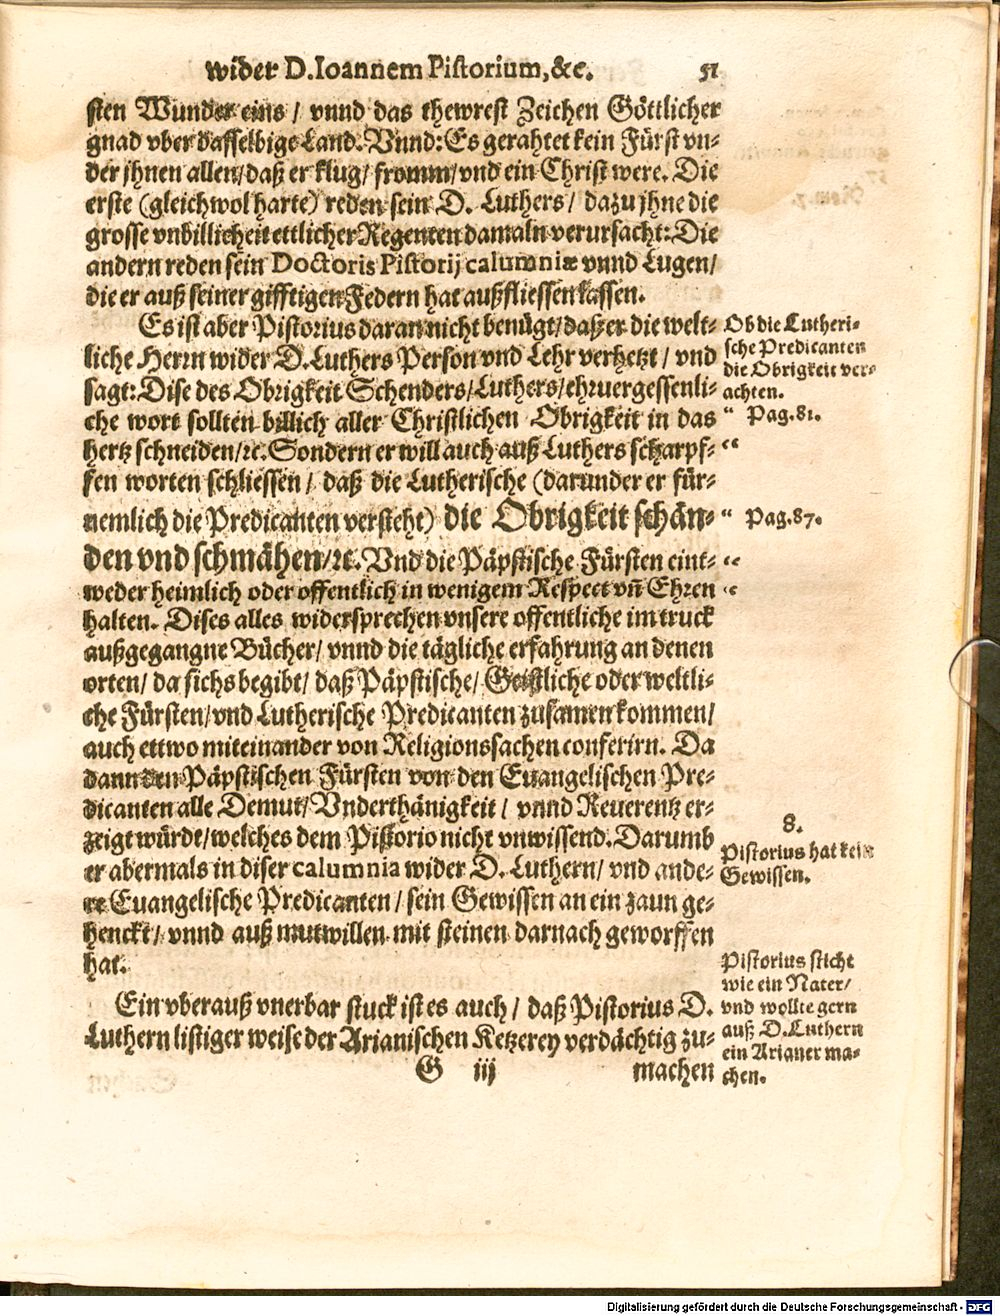 wider D. Ioannem Pistorium, &c. 51
sten Wunder eins / vnnd das thewrest Zeichen Göttlicher
gnad vber dasselbige Land. Vnnd: Es gerahtet kein Fürst vn-
der jhnen allen / daß er klug / fromm / vnd ein Christ were. Die
erste (gleichwol harte) reden sein D. Luthers / dazu jhne die
grosse vnbillicheit ettlicher Regenten damaln verursacht: Die
andern reden sein Doctoris Pistorij calumniæ vnnd Lugen /
die er auß seiner gifftigen Federn hat außfliessen lassen.
Es ist aber Pistorius daran nicht benügt / daß er die welt-
liche Herrn wider D. Luthers Person vnd Lehr verhetzt / vnd
sagt: Dise des Obrigkeit Schenders / Luthers / ehruergessenli-
che wort sollten billich aller Christlichen Obrigkeit in das
hertz schneiden / ꝛc. Sondern er will auch auß Luthers scharpf-
fen worten schliessen / daß die Lutherische (darunder er für-
nemlich die Predicanten versteht) die Obrigkeit schän-
den vnd schmähen / ꝛc. Vnd die Päpstische Fürsten eint-
weder heimlich oder offentlich in wenigem Respect vñ Ehren
halten. Dises alles widersprechen vnsere offentliche im truck
außgegangne Bücher / vnnd die tägliche erfahrung an denen
orten / da sichs begibt / daß Päpstische / Geistliche oder weltli-
che Fürsten / vnd Lutherische Predicanten zusamen kommen /
auch ettwo miteinander von Religionssachen conferirn. Da
dann den Päpstischen Fürsten von den Euangelischen Pre-
dicanten alle Demut / Vnderthänigkeit / vnnd Reuerentz er-
zeigt würdt / welches dem Pistorio nicht vnwissend. Darumb
er abermals in diser calumnia wider D. Luthern / vnd ande-
re Euangelische Predicanten / sein Gewissen an ein zaun ge-
henckt / vnnd auß mutwillen mit steinen darnach geworffen
hat.
Ein vberauß vnerbar stuck ist es auch / daß Pistorius D.
Luthern listiger weise der Arianischen Ketzerey verdächtig zu-
G iij machen
Ob die Lutheri-
sche Predicanten
die Obrigkeit ver-
achten.
“ Pag. 81.
“
“ Pag. 87.
“
“
8.
Pistorius hat kein
Gewissen.
Pistorius sticht
wie ein Nater /
vnd wollte gern
auß D. Luthern
ein Arianer ma-
chen.
Digitalisierung gefördert durch die Deutsche Forschungsgemeinschaft - DFG